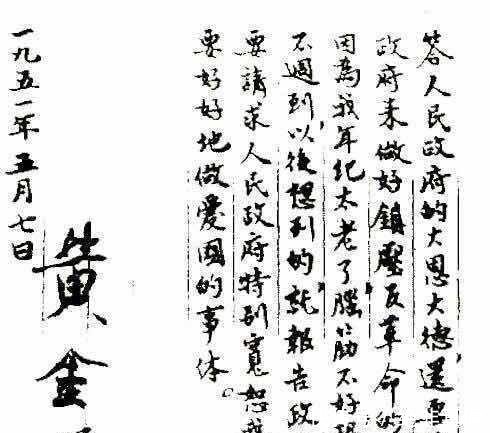 答人民政府的大恩大德，還要
政府来做好鎮壓反革命的
因為我年纪太老了腦筋不好
不週到，以後想到的就報告政
要請求人民政府特别寬恕
要好好地做愛國的事体。
黄金
一九五一年五月七日